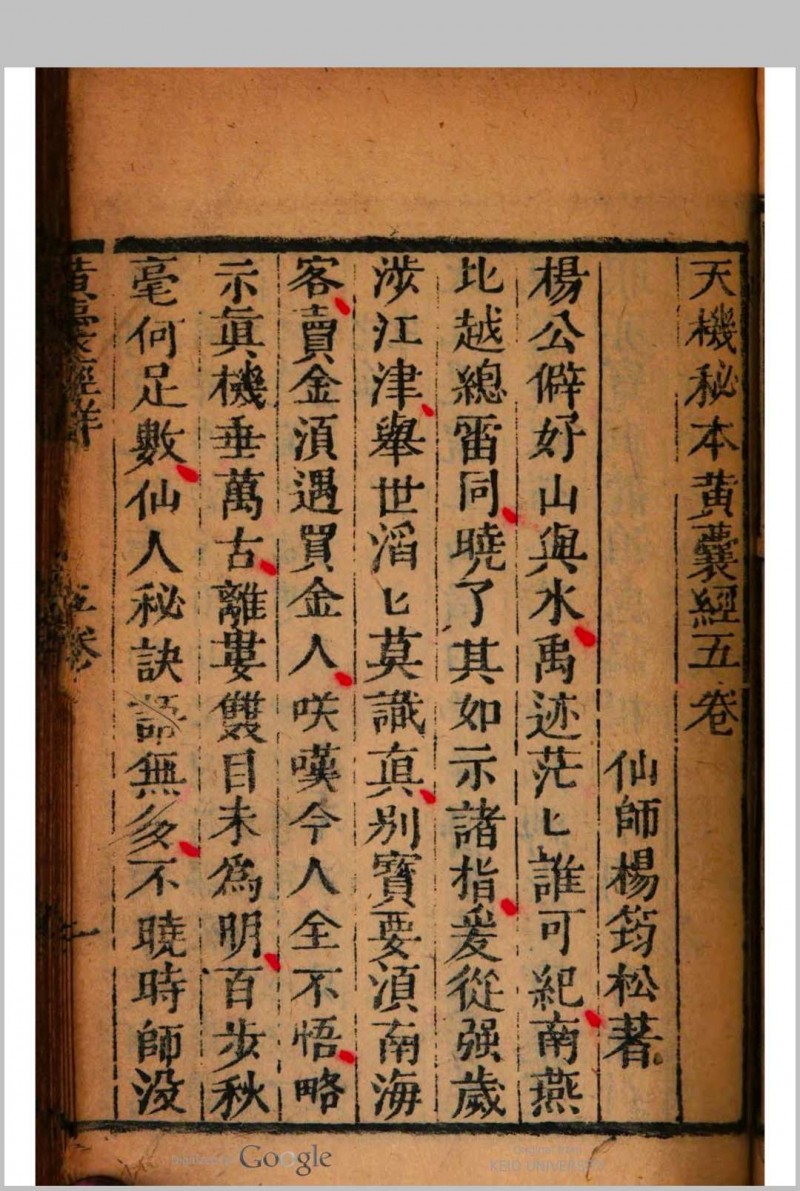 天機秘本黄囊經五卷
仙師楊筠松著
楊公僻好山與水禹迹茫匕誰可紀南燕
北越總雷同曉了其如示諸指爰從强歲
涉江津舉世滔匕莫識真别寶要湏南海
客賣金湏遇買金人咲嘆今人全不悟略
示眞機垂萬古離婁雙目未為明百步秋
毫何足數仙人秘訣語無多不曉時師没
黄囊經祥
五卷
一
Digitized by Google
Original from
KEIO UNIVERSITY